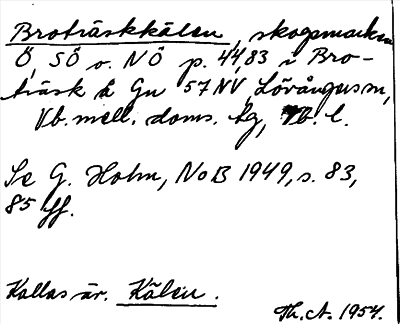 Broträskkälen, skogsmarken
Ö, SÖ o. NÖ p. 44,83 i Bro-
träsk å Gn 57 NV, Lövångers sn,
Vb. mell. doms. tg, Vb. l.
Se G. Holm, NoB 1949, s. 83,
85 ff.
Kallas äv. Kälen.
Th. A. 1954.